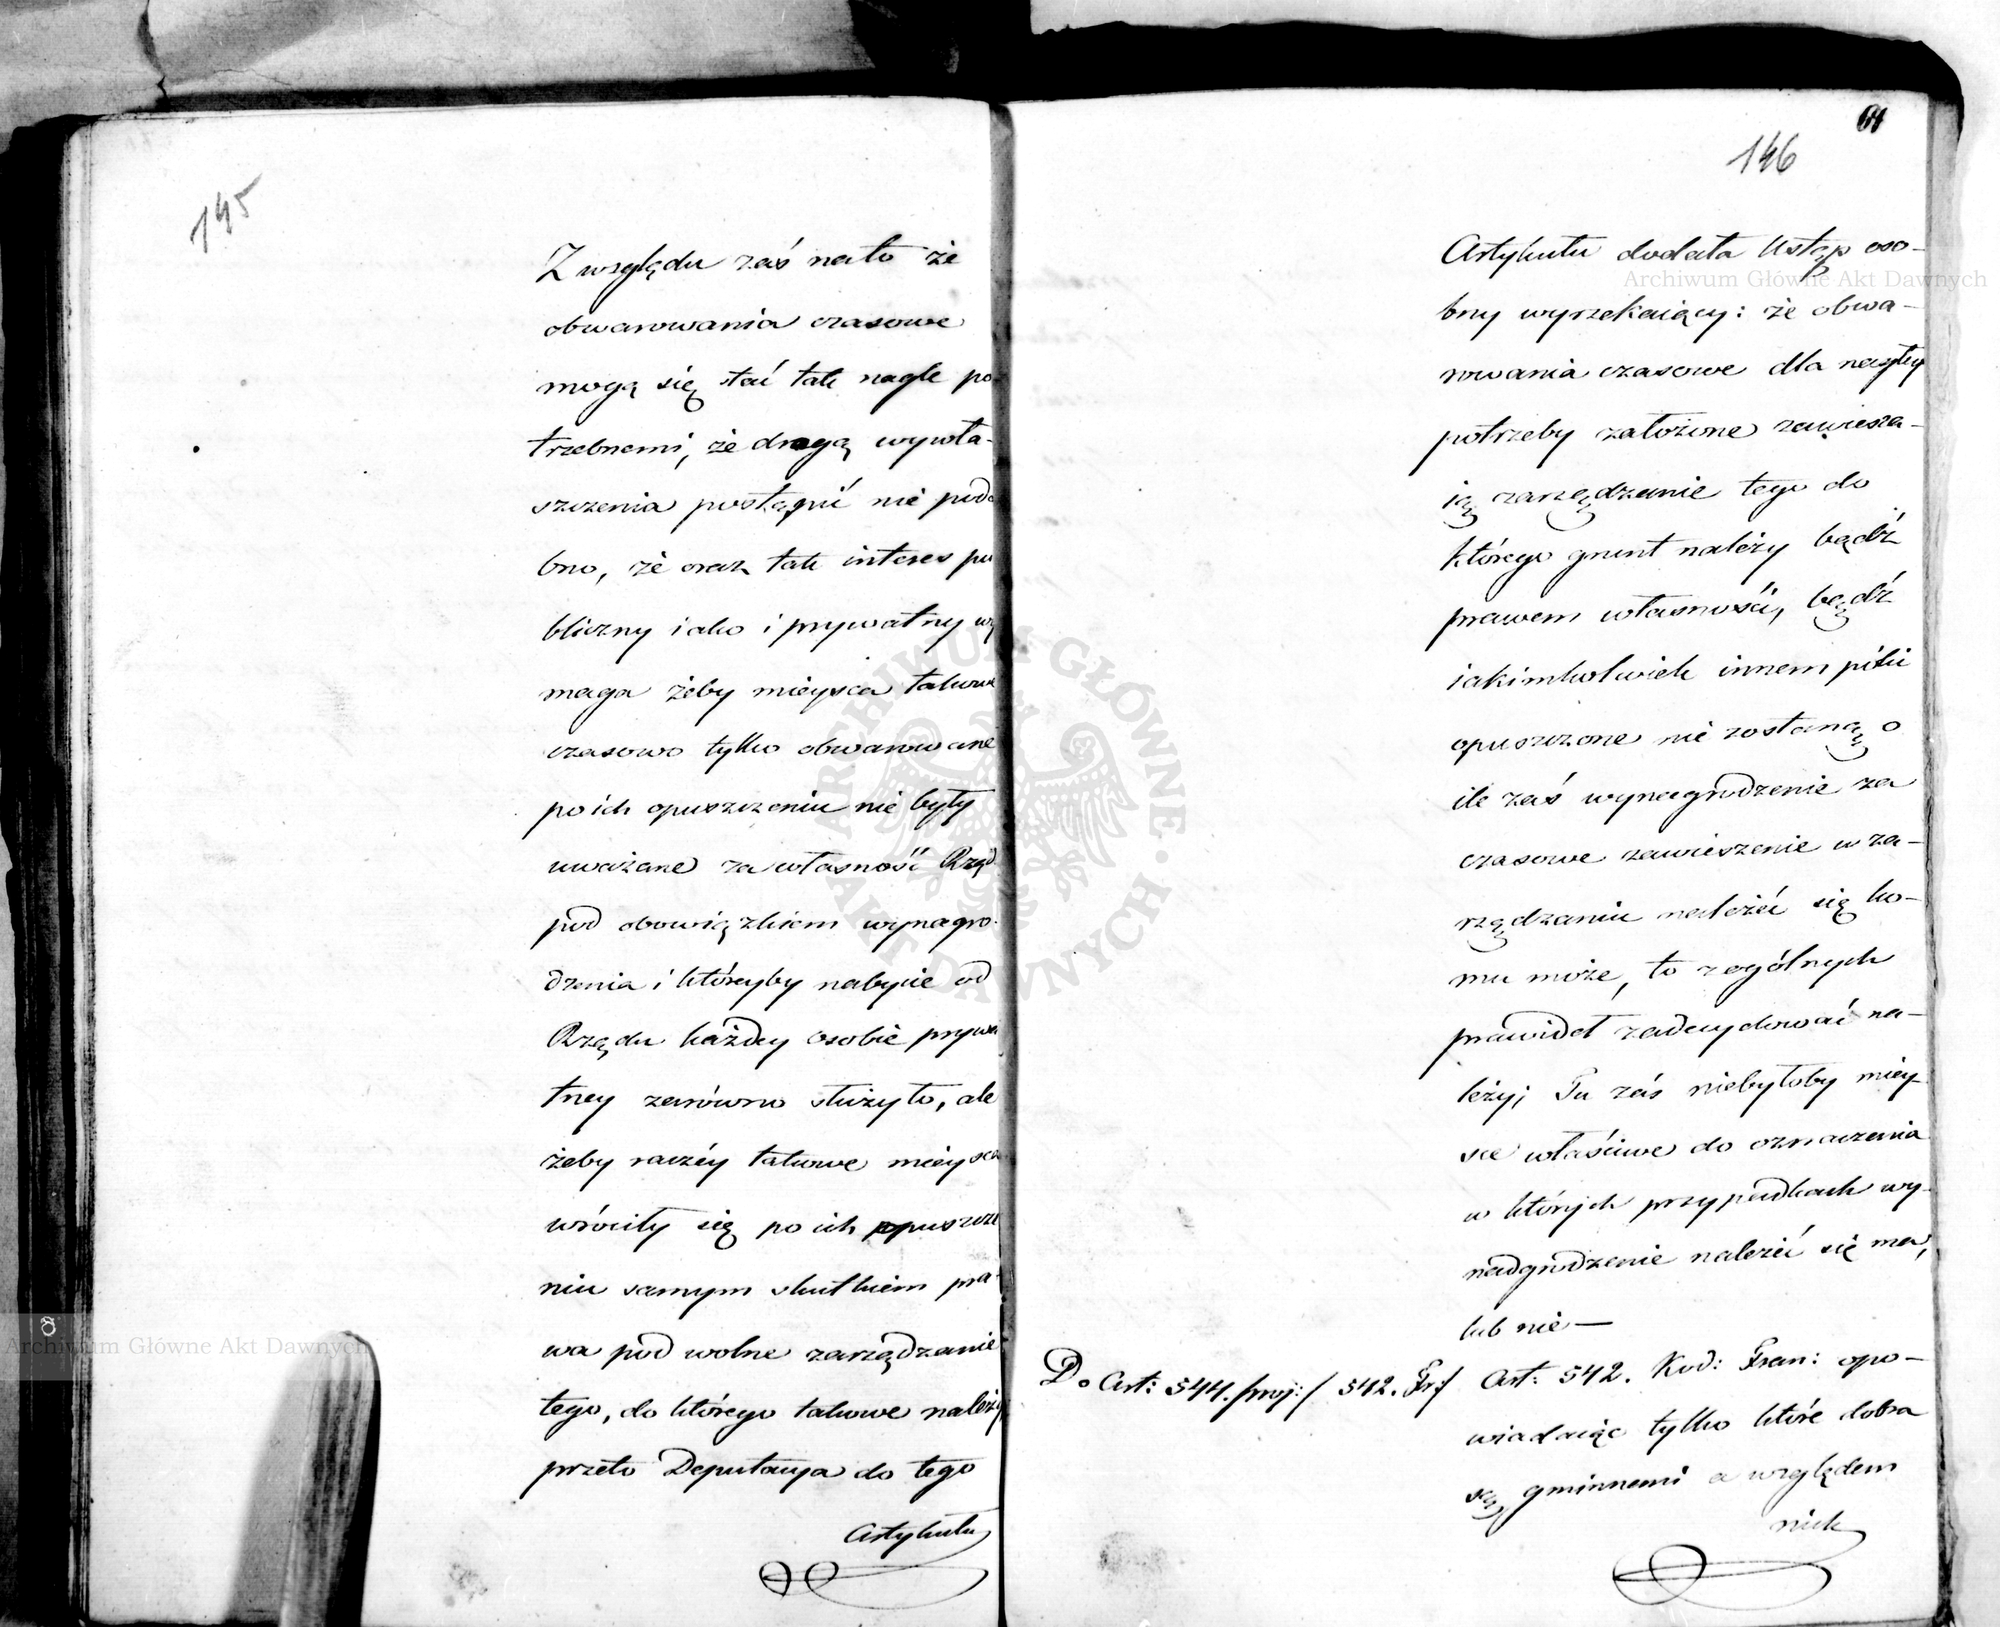 145
Z względu zaś na to że
obwarowania czasowe
mogą się stać tak nagle po-
trzebnemi, że drogą wywła-
szczenia postąpić nie podo
bno, że oraz tak interes pu
bliczny iako i prywatny wy
maga żeby mieysca takowe
czasowo tylko obwarowane
po ich opuszczeniu nie były
uważane za własność Rząd.
pod obowiązkiem wynagro-
dzenia i któreyby nabycie od
Rządu każdey osobie prywa
tney zarówno służyło, ale
żeby raczéy takowe mieysca
wróciły się po ich opuszcze
niu samym skutkiem pra-
wa pod wolne zarządzanie
tego, do którego takowe należy
przeto Deputacya do tego
Artykułu
61
146
Artykułu dodała Ustęp oso-
bny wyrzekaiący: że obwa-
rowania czasowe dla nagłey
potrzeby założone zawiesza-
ią zarządzanie tego do
którego grunt należy bądź
prawem własności, bądź
iakimkolwiek innem póki
opuszczone nie zostaną, o
ile zaś wynagrodzenie za
czasowe zawieszenie w za-
rządzaniu należéć się ko-
mu może, to z ogólnych
prawideł zadecydować na-
leży; Tu zaś niebyłoby miey-
sce właściwe do oznaczenia
w których przypadkach wy-
nadgrodzenie należéć się ma,
lub nie —
Do Art: 544. proj: / 542. Fr:/ Art: 542. Kod: Fran: opo-
wiadaiąc tylko które dobra
są gminnemi a względem
nich
Archiwum Główne Akt Dawnych
Archiwum Główne Akt Dawnych
ARCHIWUM GŁÓWNE AKT DAWNYCH